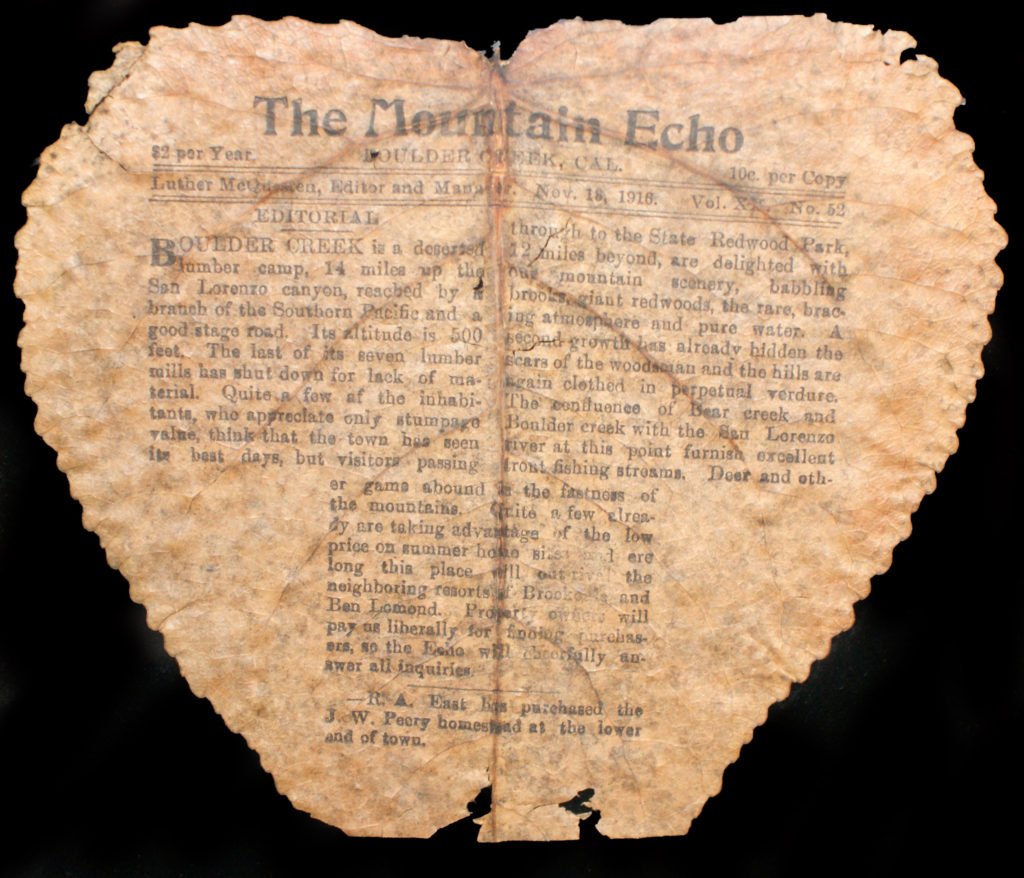 The Mountain Echo
$2 per Year. BOULDER CREEK, CAL. 10c. per Copy
Luther McQuesten, Editor and Manager. Nov. 18, 1916. Vol. No. 52
EDITORIAL
BOULDER CREEK is a deserted
lumber camp, 14 miles up the
San Lorenzo canyon, reached by a
branch of the Southern Pacific and a
good stage road. Its altitude is 500
feet. The last of its seven lumber
mills has shut down for lack of ma-
terial. Quite a few af the inhabi-
tants, who appreciate only stumpage
value, think that the town has seen
its best days, but visitors passing
through to the State Redwood Park,
12 miles beyond, are delighted with
our mountain scenery, babbling
brooks, giant redwoods, the rare, brac-
ing atmosphere and pure water. A
second growth has already hidden the
scars of the woodsman and the hills are
again clothed in perpetual verdure.
The confluence of Bear creek and
Boulder creek with the San Lorenzo
river at this point furnish excellent
trout fishing streams. Deer and oth-
er game abound in the fastness of
the mountains. Quite a few alrea-
dy are taking advantage of the low
price on summer home sites and ere
long this place will out-rival the
neighboring resorts of and
Ben Lomond. Property owners will
pay us liberally for finding purchas-
ers, so the Echo will cheerfully an-
swer all inquiries.
—R. A. East has purchased the
J. W. Peery homestead at the lower
end of town.